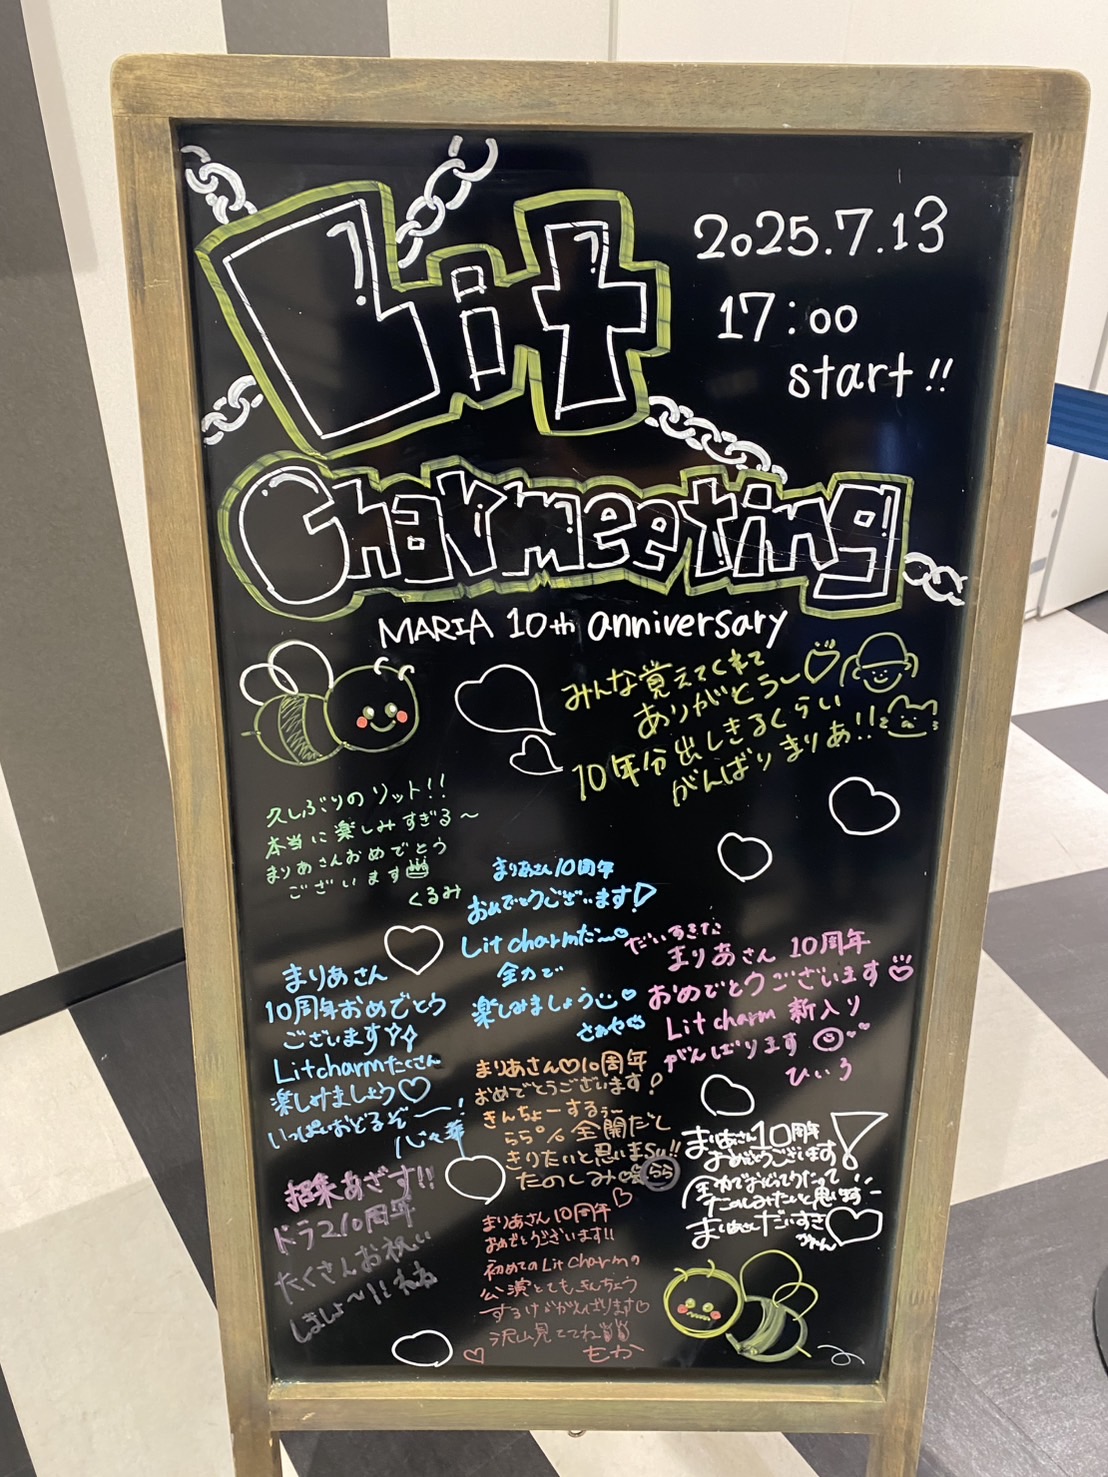 Lit
Charmeeting
2025.7.13
17:00
start!!
MARIA 10th anniversary
みんな覚えてくれて
ありがとう〜
10年分出しきるくらい
がんばりまりあ!!
久しぶりのリット!!
本当に楽しみすぎる〜
まりあさんおめでとう
ございます
くるみ
まりあさん10周年
おめでとうございます!
Lit charmだ〜
全力で
楽しみましょう
さあや
だいすきな
まりあさん 10周年
おめでとうございます
Lit charm 新入り
がんばります
ひいろ
まりあさん
10周年おめでとう
ございます
Litcharmたくさん
楽しみましょう♡
いっぱいおどるぞー!
心々華
まりあさん♡10周年
おめでとうございます!
きんちょーするぅー
らら%全開だし
きりたいと思いまSu!!
たのしみ
らら
まりあさん10周年
おめでとうございます!
まりあさんだいすき
招集あざす!!
ドラ2 10周年
たくさんお祝い
しましょ〜!!ねね
まりあさん10周年
おめでとうございます!!
初めてのLit Charmの
公演とてもきんちょう
するけどがんばります♡
沢山見ててね
もか